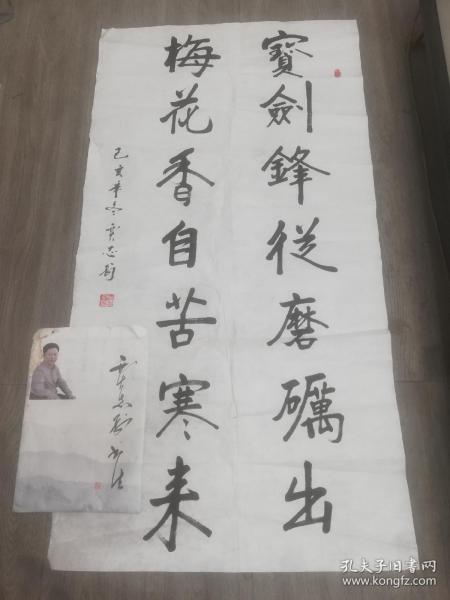 寶劍鋒從磨礪出
梅花香自苦寒來
己亥年冬
書法
孔夫子旧书网
www.kongfz.com